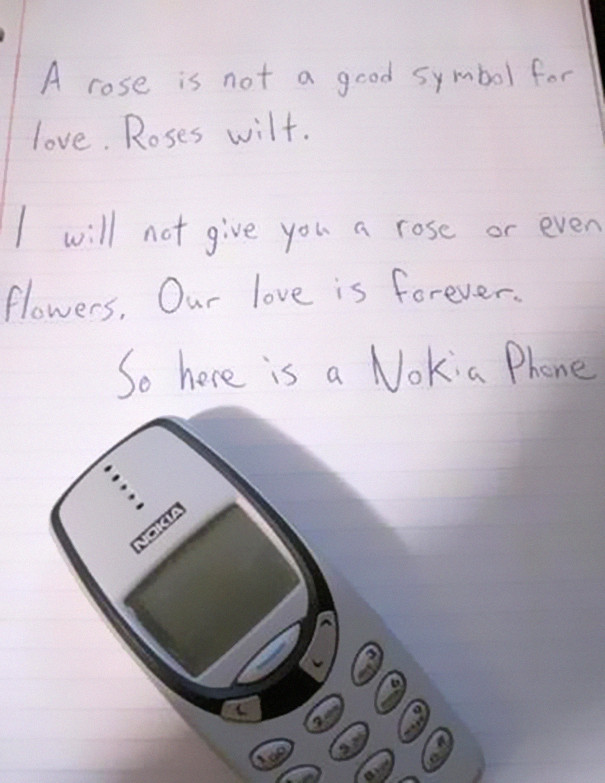 A rose is not a good symbol for
love. Roses wilt.
I will not give you a rose or even
flowers. Our love is forever.
So here is a Nokia Phone
NOKIA